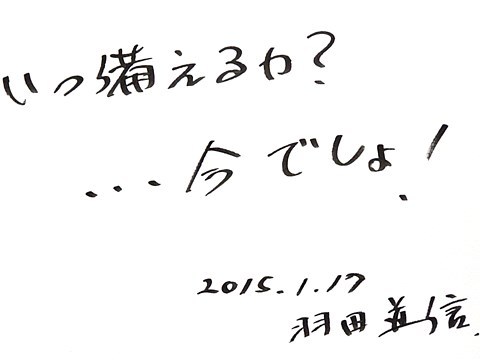 いつ備えるか?
...今でしょ!
2015.1.17
羽田道信